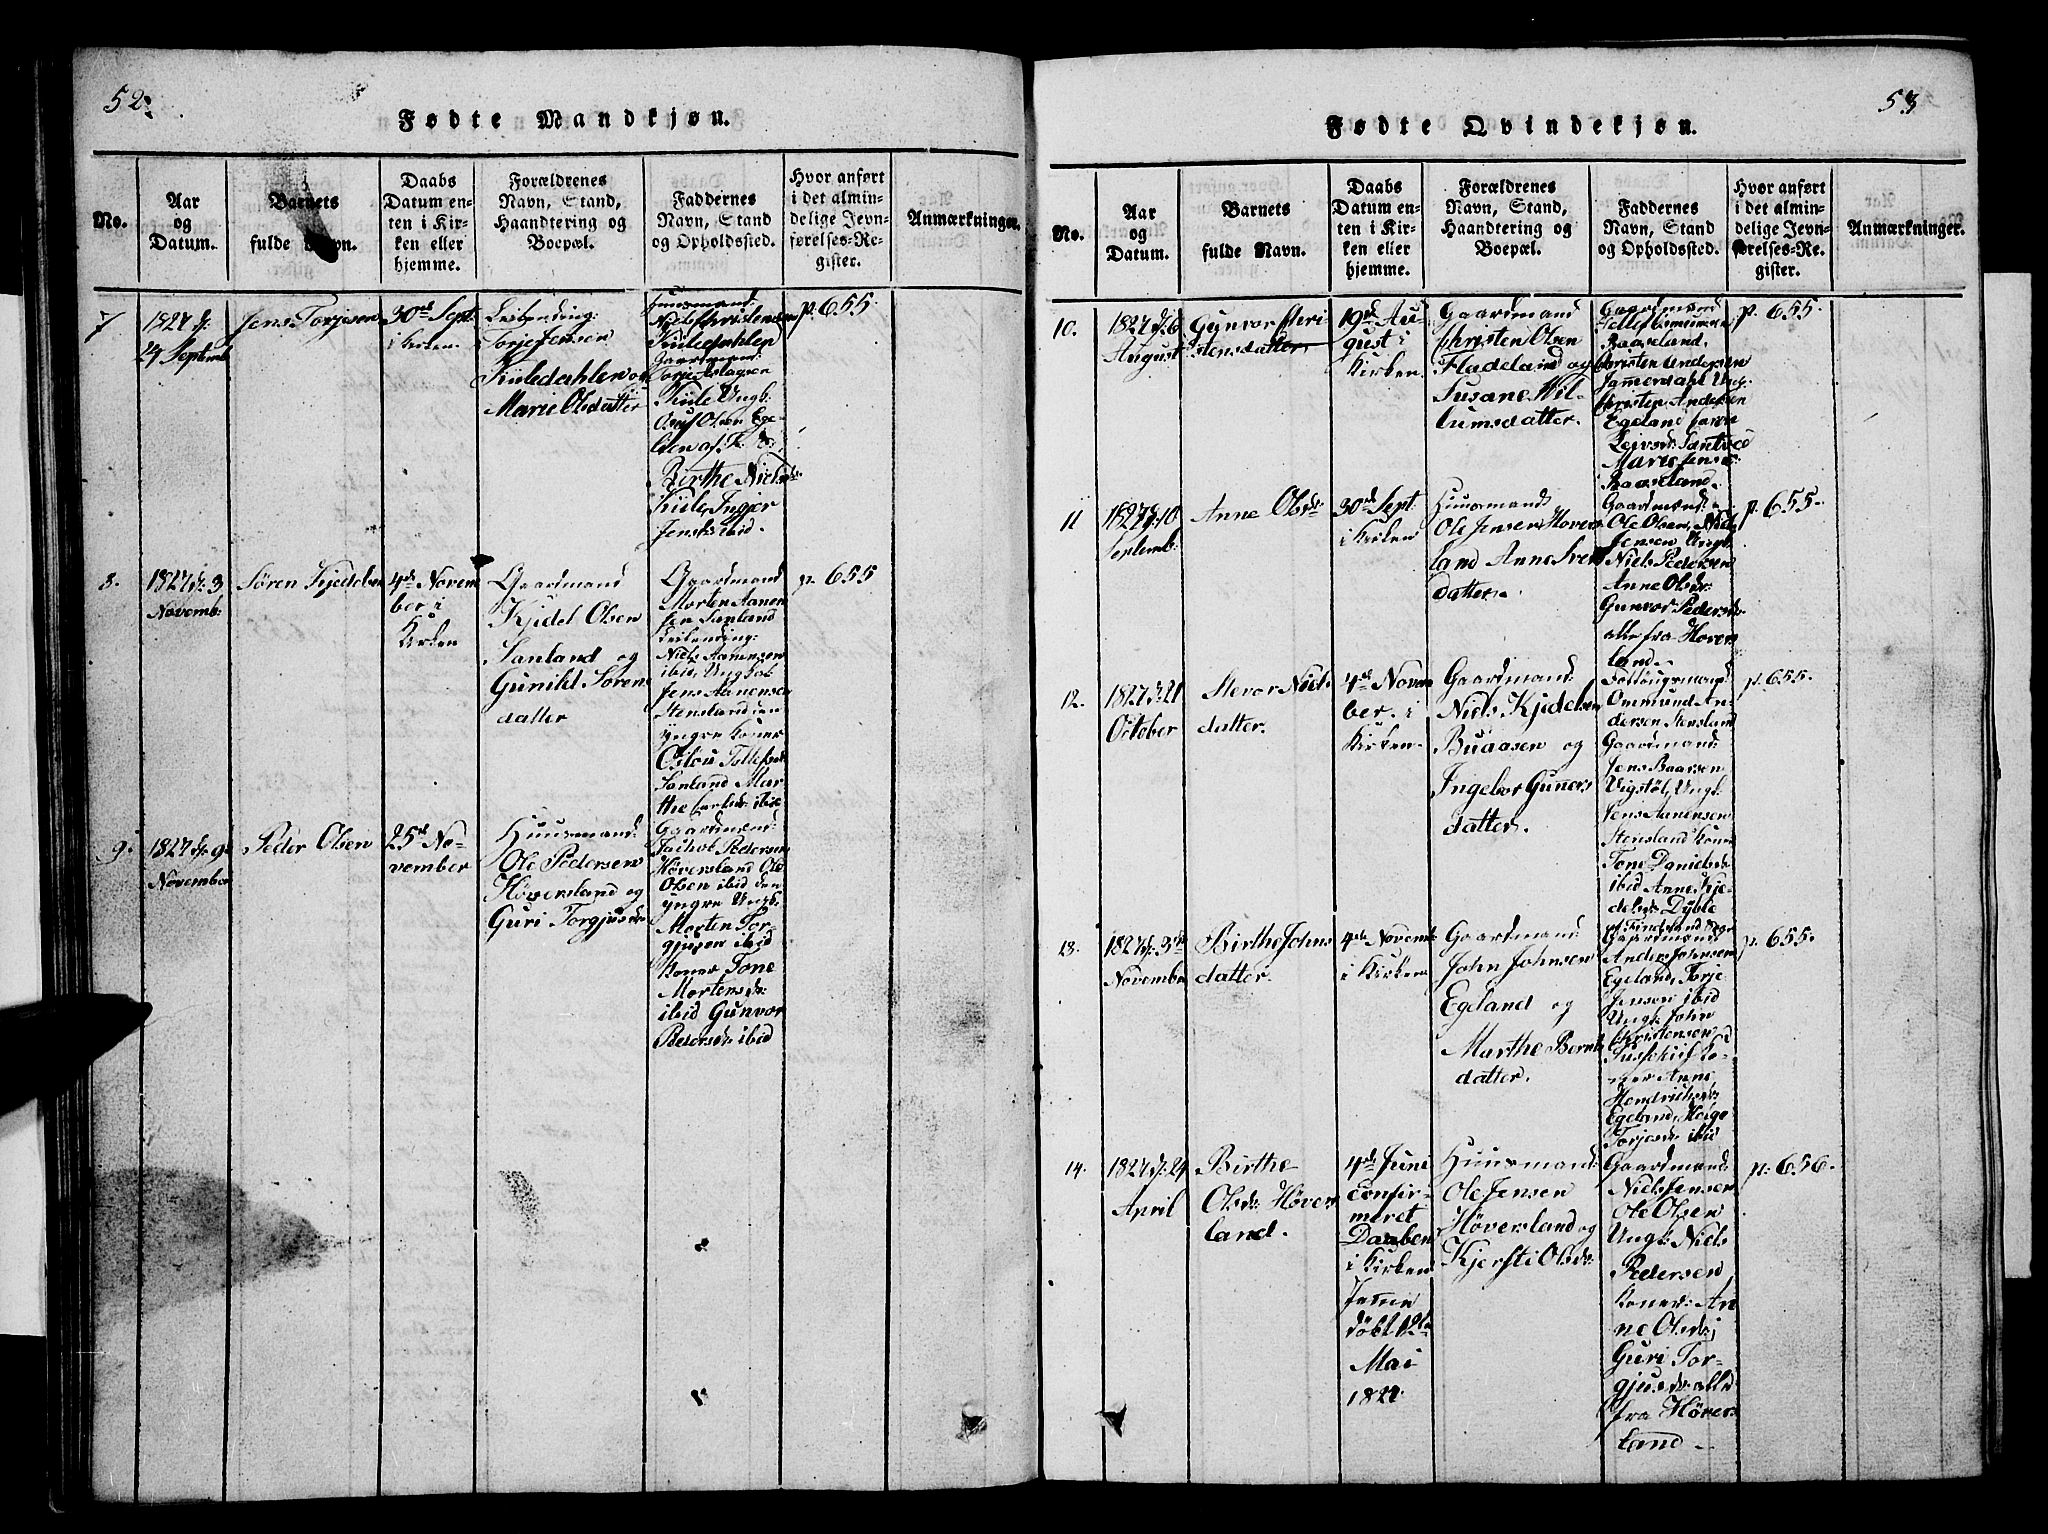 52.
Fødte Mandkjøn.
No.
Aar
og
Datum.
Barnets
fulde Navn.
Daabs
Datum en-
ten i Kir-
ken eller
hjemme.
Forældrenes
Navn, Stand,
Haandtering og
Boepæl.
Faddernes
Navn, Stand
og Opholdssted.
Hvor anført
i det almin-
delige Jevn-
førelses-Re-
gister.
Anmærkninger.
7
1827 d:
29 Septemb:
Jens Torjesen
30te Sept:
i Kirken.
Leilending:
Torje Jensen
Kiiledahlen og
Marie Olsdatter
Huusmand:
Niels Christensen
Kiiledahlen
Gaardmænd:
Torje Aslagsen
Kiile Ungk:
Oluf Olsen Ege-
Birthe Nielsdr:
Kiile, Ingjer
Jensdr ibid.
p. 655.
8.
1827 d: 3
Novemb:
Søren Kjedelsen
4de Novem
ber i
Kirken
Gaardmand
Kjidel Olsen
Sanland og
Gunild Sørens
datter
Gaardmand
Morten Aanen
sen Sanland
Leilending:
Niels Aanensen
ibid, Ungkal
Jens Aanensen
Stensland den
yngre Koner
Oslou Tellefsdr
Sanland Mar-
the Larsdr: ibid
p. 655
9.
1827 d: 9de
November
Peder Olsen
25de No-
vember
Huusmand:
Ole Pedersen
Høversland og
Guri Torgjusdr
Gaardmænd:
Jachob Pedersen
Høversland Ole
Olsen ibid den
yngre Ungk:
Morten Tor-
gjusen ibid
Koner Tone
Mortensdr:
ibid Gunvor
Pedersdr ibid
53
Fødte Qvindekjøn.
No.
Aar
og
Datum.
Barnets
fulde Navn.
Daabs
Datum en-
ten i Kir-
ken eller
hjemme.
Forældrenes
Navn, Stand,
Haandtering og
Boepæl.
Faddernes
Navn, Stand
og Opholdssted.
Hvor anført
i det almin-
delige Jevn-
førelses-Re-
gister.
Anmærkninger.
10.
1827 d. 6
August
Gunvor Chri-
stensdatter
19de Au-
gust i
Kirken.
Gaardmand
Christen Olsen
Fladeland og
Susane Wil-
lumsdatter.
Gaardmænd
Baaseland,
Christen Andersen
Jammerdahl Ung:
Christen Andersen
Egeland
Marie Jensdr:
Baaseland.
p. 655.
11
1827 d: 10
Septemb:
Anne Olsdr
30te Sept:
i Kirken
Huusmand:
Ole Jensen Hovers
land Anne Svens
datter.
Gaardmænd:
Ole Olsen, Niels
Jensen Ungk:
Niels Pedersen
Anne Olsdr:
Gunvor Pedersdr
alle fra Hovers
land.
p. 655.
12.
1827 d: 21
October
Stevor Niels
datter.
4de Novem
ber. i
Kirken.
Gaardmand:
Niels Kjedelsen
Buaasen og
Ingebor Guners
datter.
Ommund An-
dersen Stensland
Gaardmand:
Jens Baarsen
Vigstøl, Ungk:
Jens Aanensen
Stensland Koner
Tone Danielsdr
ibid Anne Kje-
delsdr: Dyble
p. 655.
13.
1827 d: 3die
November
Birthe Johns
datter.
4de Novemb:
i Kirken
Gaardmand:
John Johnsen
Egeland og
Marthe Bernts
datter.
Gaardmænd
Anders Johnsen
Egeland, Torje
Jensen ibid
Ungk: John
Christensen
Koner Anne
Hendrichsdr
Egeland, Helge
Torjesdr ibid
p. 655.
14.
1827 d: 24
April
Birthe
Olsdr: Høvers
land.
4de Juni
confir-
meret
Daaben
i Kirken
hjemme
døbt 12te
Mai
1827.
Huusmand:
Ole Jensen
Høversland og
Kjersti Olsdr
Gaardmænd:
Niels Jensen
Ole Olsen
Ungk: Niels
Pedersen,
Koner: An-
ne Olsdr,
Guri Tor-
gjusdr alle
fra Høvers
land.
p. 656.